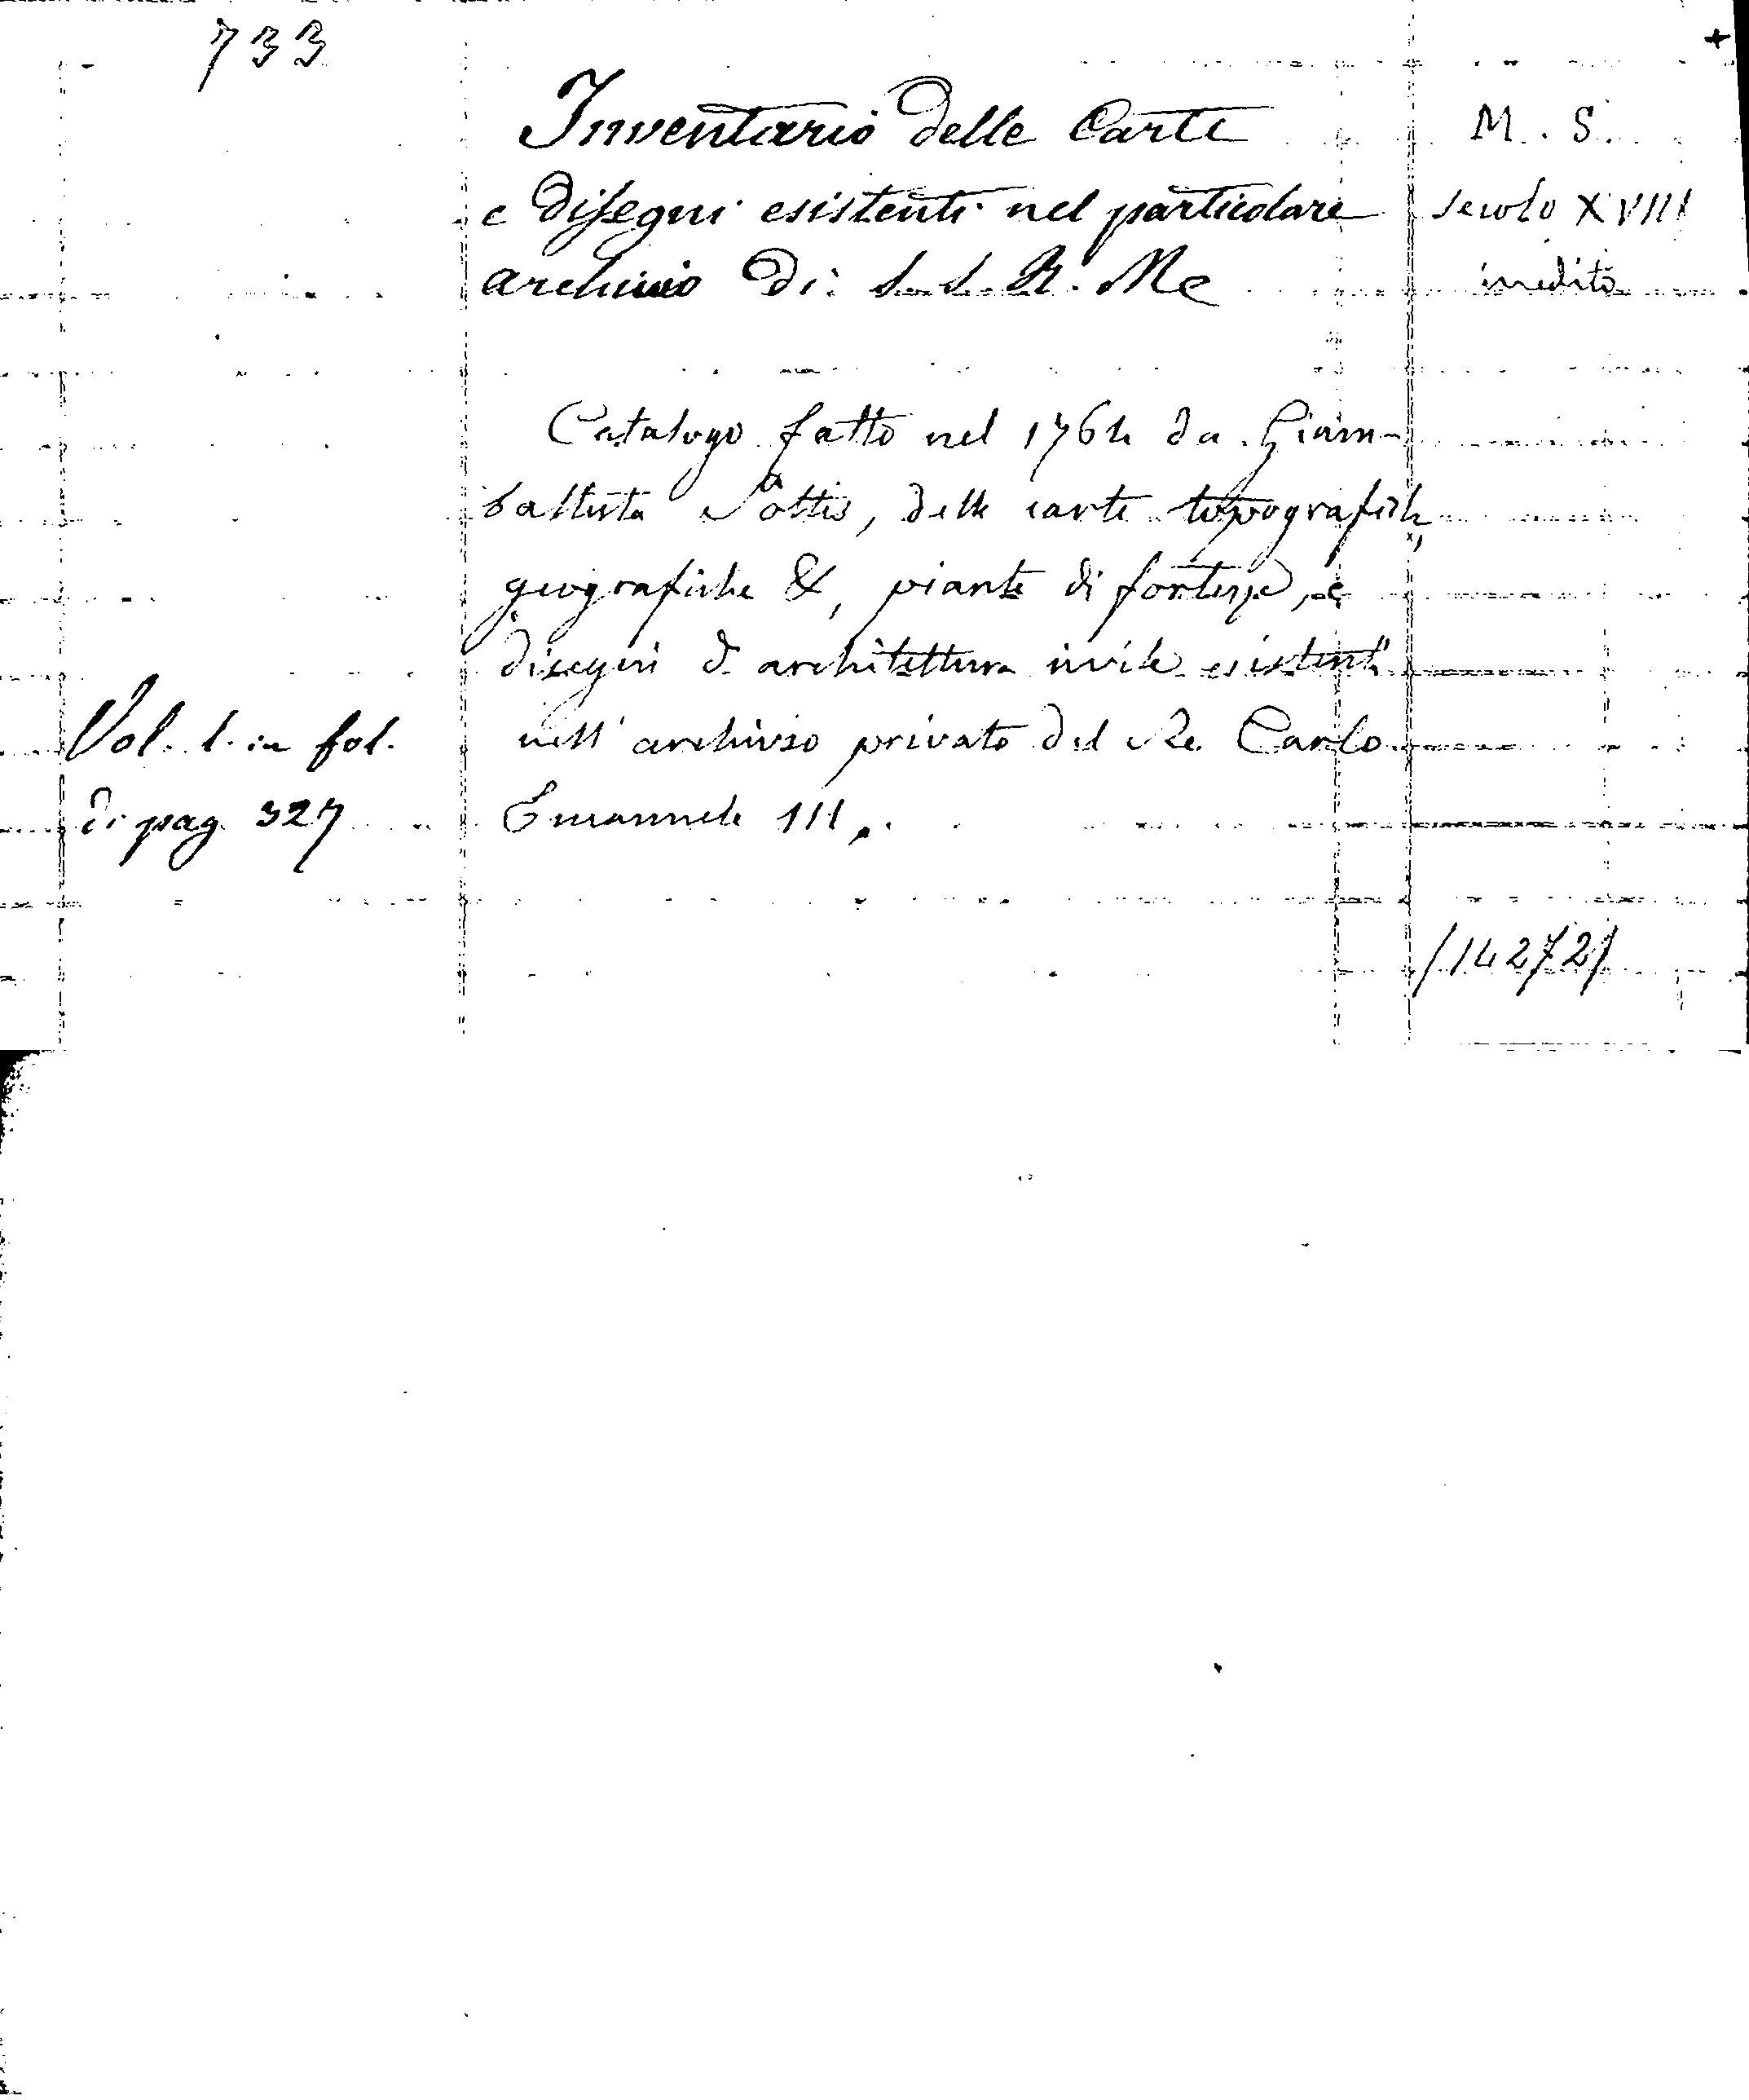 733
+
Inventario delle Carte
e disegni esistenti nel particolare
archivio di S. S. R. Me
M. S.
secolo XVIII
inedito
Catalogo fatto nel 1764 da Giam-
battista, delle carte topografiche,
geografiche &, piante di fortezze, e
disegni d. architettura civile esistenti
nell' archivio privato del Re Carlo
Emanuele III.
Vol. 1. in fol.
di pag. 327
/14272/